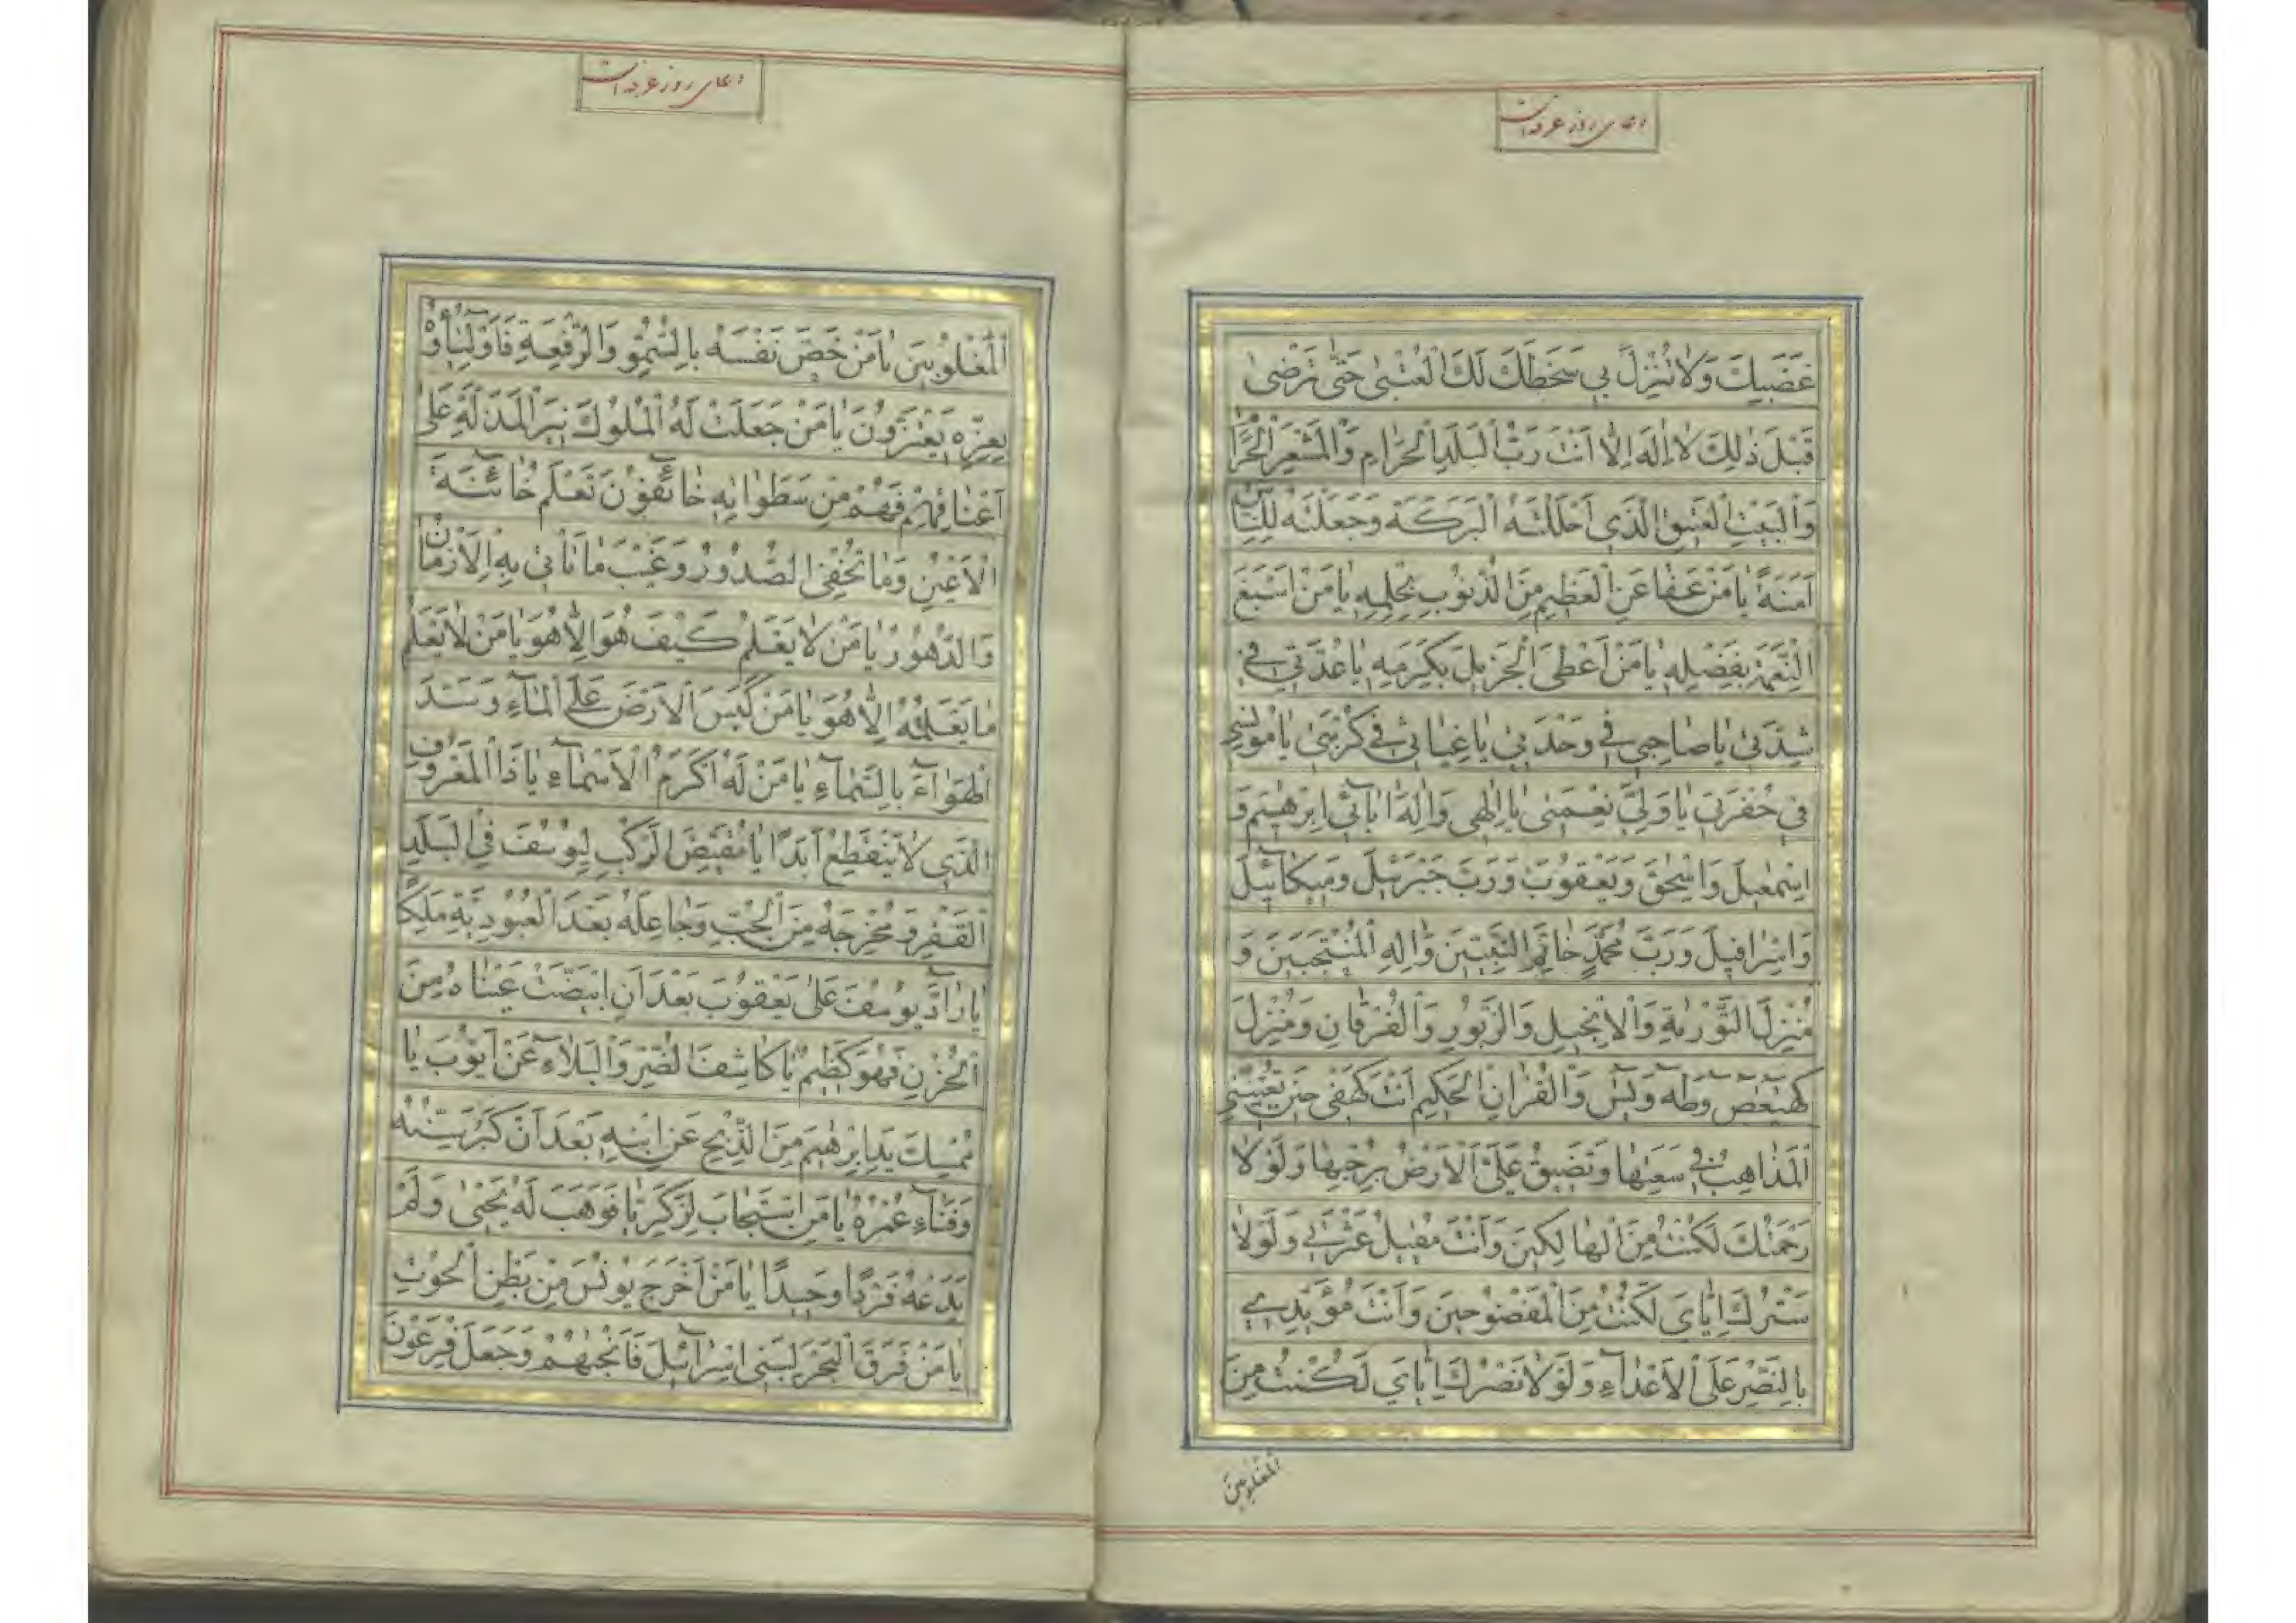 دعای روز عرفه است
غَضَبَكَ وَلَا تُنْزِلْ بِي سَخَطَكَ لَكَ الْعُتْبىٰ حَتّٰى تَرْضىٰ
قَبْلَ ذٰلِكَ لَا اِلٰهَ اِلَّا اَنْتَ رَبَّ الْبَلَدِ الْحَرَامِ وَالْمَشْعَرِ الْحَرَامِ
وَالْبَيْتِ الْعَتِيقِ الَّذِي اَحْلَلْتَهُ الْبَرَكَةَ وَجَعَلْتَهُ لِلنَّاسِ
اَمَنَةً يَا مَنْ عَفَا عَنِ الْعَظِيمِ مِنَ الذُّنُوبِ بِحِلْمِهِ يَا مَنْ اَسْبَغَ
النِّعْمَةَ بِفَضْلِهِ يَا مَنْ اَعْطَى الْجَزِيلَ بِكَرَمِهِ يَا عُدَّتِي فِي
شِدَّتِي يَا صَاحِبِي فِي وَحْدَتِي يَا غِيَاثِي فِي كُرْبَتِي يَا مُونِسِي
فِي حُفْرَتِي يَا وَلِيِّ نِعْمَتِي يَا اِلٰهِي وَاِلٰهَ اٰبَائِي اِبْرٰهِيمَ وَ
اِسْمٰعِيلَ وَاِسْحٰقَ وَيَعْقُوبَ وَرَبَّ جَبْرَئِيلَ وَمِيكَائِيلَ
وَاِسْرَافِيلَ وَرَبَّ مُحَمَّدٍ خَاتَمِ النَّبِيِّينَ وَاٰلِهِ الْمُنْتَجَبِينَ وَ
مُنْزِلَ التَّوْرٰيةِ وَالْاِنْجِيلِ وَالزَّبُورِ وَالْفُرْقَانِ وَمُنْزِلَ
كٓهٰيٰعٓصٓ وَطٰهٰ وَيٰسٓ وَالْقُرْاٰنِ الْحَكِيمِ اَنْتَ كَهْفِي حِينَ تُعْيِينِي
الْمَذَاهِبُ فِي سَعَتِهَا وَتَضِيقُ عَلَيَّ الْاَرْضُ بِرُحْبِهَا وَلَوْلَا
رَحْمَتُكَ لَكُنْتُ مِنَ الْهَالِكِينَ وَاَنْتَ مُقِيلُ عَثْرَتِي وَلَوْلَا
سَتْرُكَ اِيَّايَ لَكُنْتُ مِنَ الْمَفْضُوحِينَ وَاَنْتَ مُؤَيِّدِي
بِالنَّصْرِ عَلَى الْاَعْدَاءِ وَلَوْلَا نَصْرُكَ اِيَّايَ لَكُنْتُ مِنَ
الْمَغْلُوبِينَ
دعای روز عرفه است
الْمَغْلُوبِينَ يَا مَنْ خَصَّ نَفْسَهُ بِالسُّمُوِّ وَالرِّفْعَةِ فَاَوْلِيَاؤُهُ
بِعِزِّهِ يَعْتَزُّونَ يَا مَنْ جَعَلَتْ لَهُ الْمُلُوكُ نِيرَ الْمَذَلَّةِ عَلٰى
اَعْنَاقِهِمْ فَهُمْ مِنْ سَطَوَاتِهِ خَائِفُونَ تَعْلَمُ خَائِنَةَ
الْاَعْيُنِ وَمَا تُخْفِي الصُّدُورُ وَغَيْبَ مَا تَأْتِي بِهِ الْاَزْمَانُ
وَالدُّهُورُ يَا مَنْ لَا يَعْلَمُ كَيْفَ هُوَ اِلَّا هُوَ يَا مَنْ لَا يَعْلَمُ
مَا يَعْلَمُهُ اِلَّا هُوَ يَا مَنْ كَبَسَ الْاَرْضَ عَلَى الْمَاءِ وَسَدَّ
الْهَوَاءَ بِالسَّمَاءِ يَا مَنْ لَهُ اَكْرَمُ الْاَسْمَاءِ يَا ذَا الْمَعْرُوفِ
الَّذِي لَا يَنْقَطِعُ اَبَدًا يَا مُقَيِّضَ الرَّكْبِ لِيُوسُفَ فِي الْبَلَدِ
الْقَفْرِ وَمُخْرِجَهُ مِنَ الْجُبِّ وَجَاعِلَهُ بَعْدَ الْعُبُودِيَّةِ مَلِكًا
يَا رَادَّ يُوسُفَ عَلٰى يَعْقُوبَ بَعْدَ اَنِ ابْيَضَّتْ عَيْنَاهُ مِنَ
الْحُزْنِ فَهُوَ كَظِيمٌ يَا كَاشِفَ الضُّرِّ وَالْبَلَاءِ عَنْ اَيُّوبَ يَا
مُمْسِكَ يَدِ اِبْرٰهِيمَ مِنَ الذَّبْحِ عَنِ ابْنِهِ بَعْدَ اَنْ كَبُرَ سِنُّهُ
وَفَنَاءِ عُمْرِهِ يَا مَنِ اسْتَجَابَ لِزَكَرِيَّا فَوَهَبَ لَهُ يَحْيٰى وَلَمْ
يَدَعْهُ فَرْدًا وَحِيدًا يَا مَنْ اَخْرَجَ يُونُسَ مِنْ بَطْنِ الْحُوتِ
يَا مَنْ فَرَقَ الْبَحْرَ لِبَنِي اِسْرَائِيلَ فَاَنْجٰيهُمْ وَجَعَلَ فِرْعَوْنَ